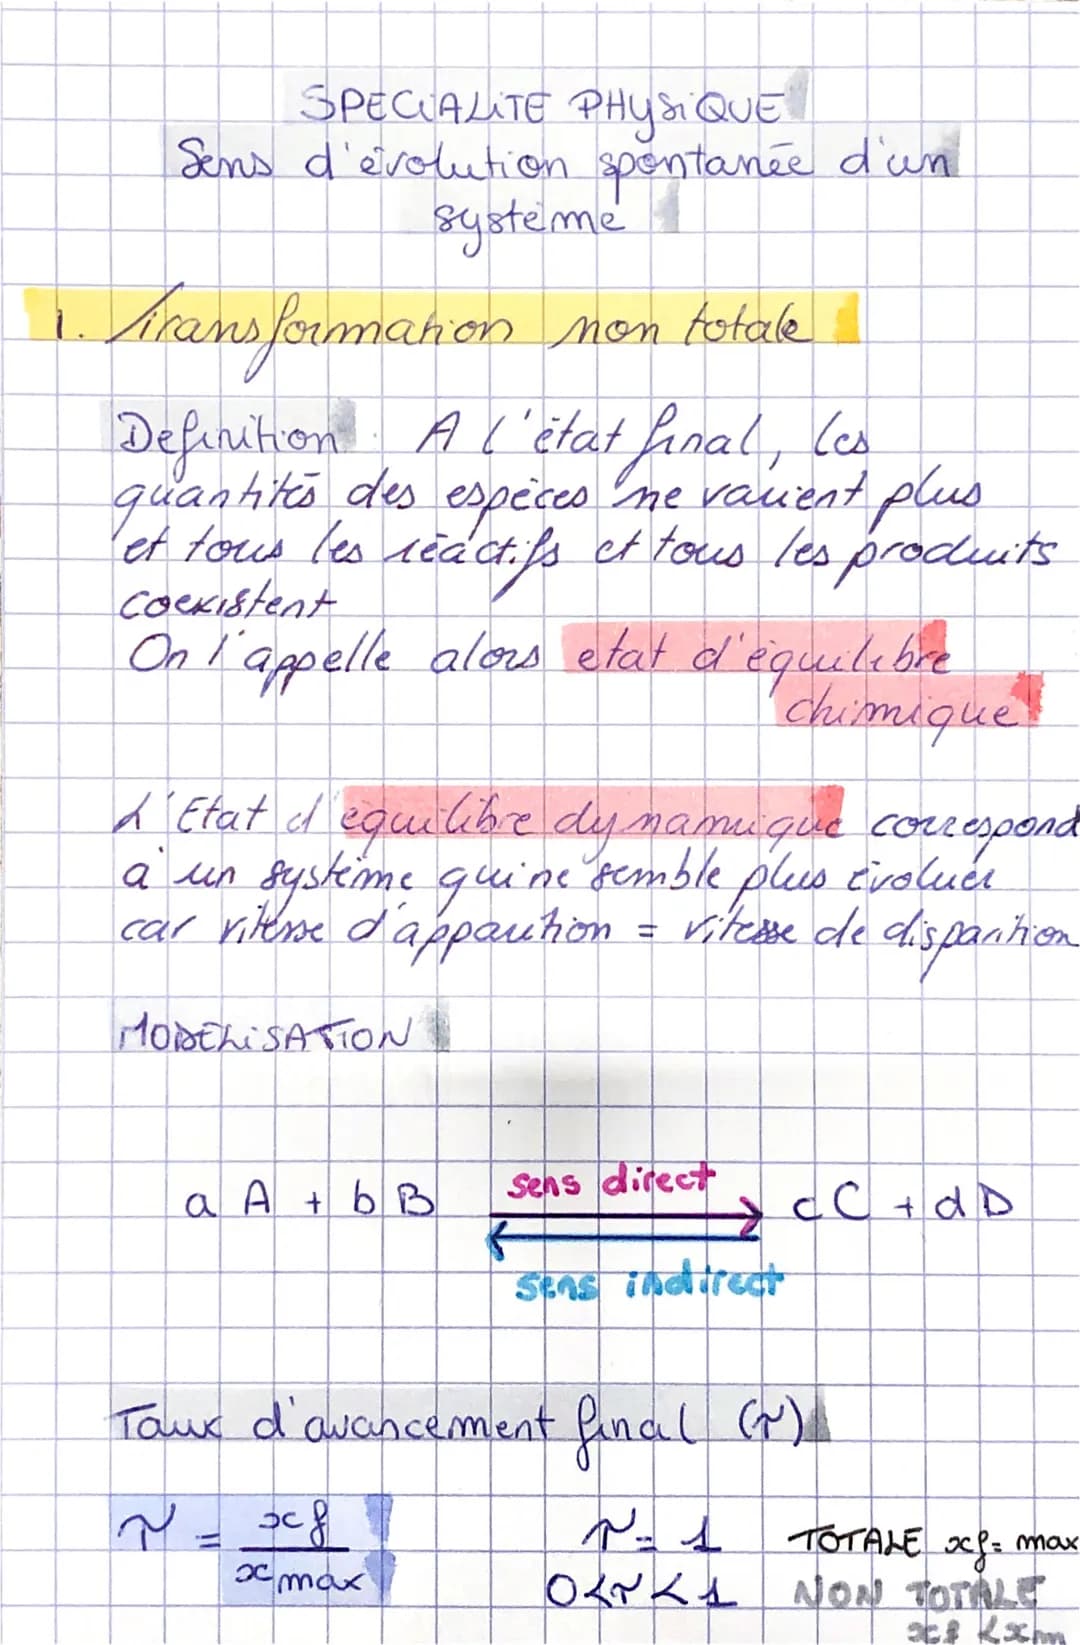 SPECIALITE PHYSIQUE
Sens d'évolution spontanée d'un
système
1. Transformation non totale
Definition : A l'état final, les
quantités des espèces ne varient plus
et tous les réactifs et tous les produits
coexistent
On l'appelle alors etat d'équilibre
chimique
L'Etat d'équilibre dynamique correspond
à un système qui ne semble plus évoluer
car vitesse d'apparition = vitesse de disparition
MODELISATION
sens direct
a A + b B cC + dD
sens indirect
Taux d'avancement final (τ)
τ = xf / xmax τ = 1 TOTALE xf = max
0<τ<1 NON TOTALE
xf < xm